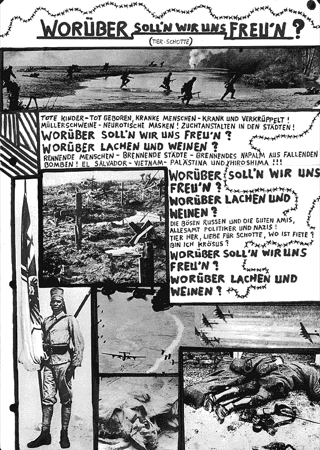 WORÜBER SOLL'N WIR UNS FREU'N ?
(TIER-SCHOTTE)
TOTE KINDER - TOT GEBOREN, KRANKE MENSCHEN - KRANK UND VERKRÜPPELT!
MÜLLERSCHWEINE - NEUROTISCHE MASKEN! ZUCHTANSTALTEN IN DEN STÄDTEN!
WORÜBER SOLL'N WIR UNS FREU'N ?
WORÜBER LACHEN UND WEINEN ?
RENNENDE MENSCHEN - BRENNENDE STÄDTE - BRENNENDES NAPALM AUS FALLENDEN
BOMBEN! EL SALVADOR - VIETNAM - PALÄSTINA UND HIROSHIMA !!!
WORÜBER SOLL'N WIR UNS
FREU'N ?
WORÜBER LACHEN UND
WEINEN ?
DIE BÖSEN RUSSEN UND DIE GUTEN AMIS,
ALLESAMT POLITIKER UND NAZIS !
TIER HER, LIEBE FÜR SCHOTTE, WO IST FIETE ?
BIN ICH KRÖSUS ?
WORÜBER SOLL'N WIR UNS
FREU'N ?
WORÜBER LACHEN UND
WEINEN ?